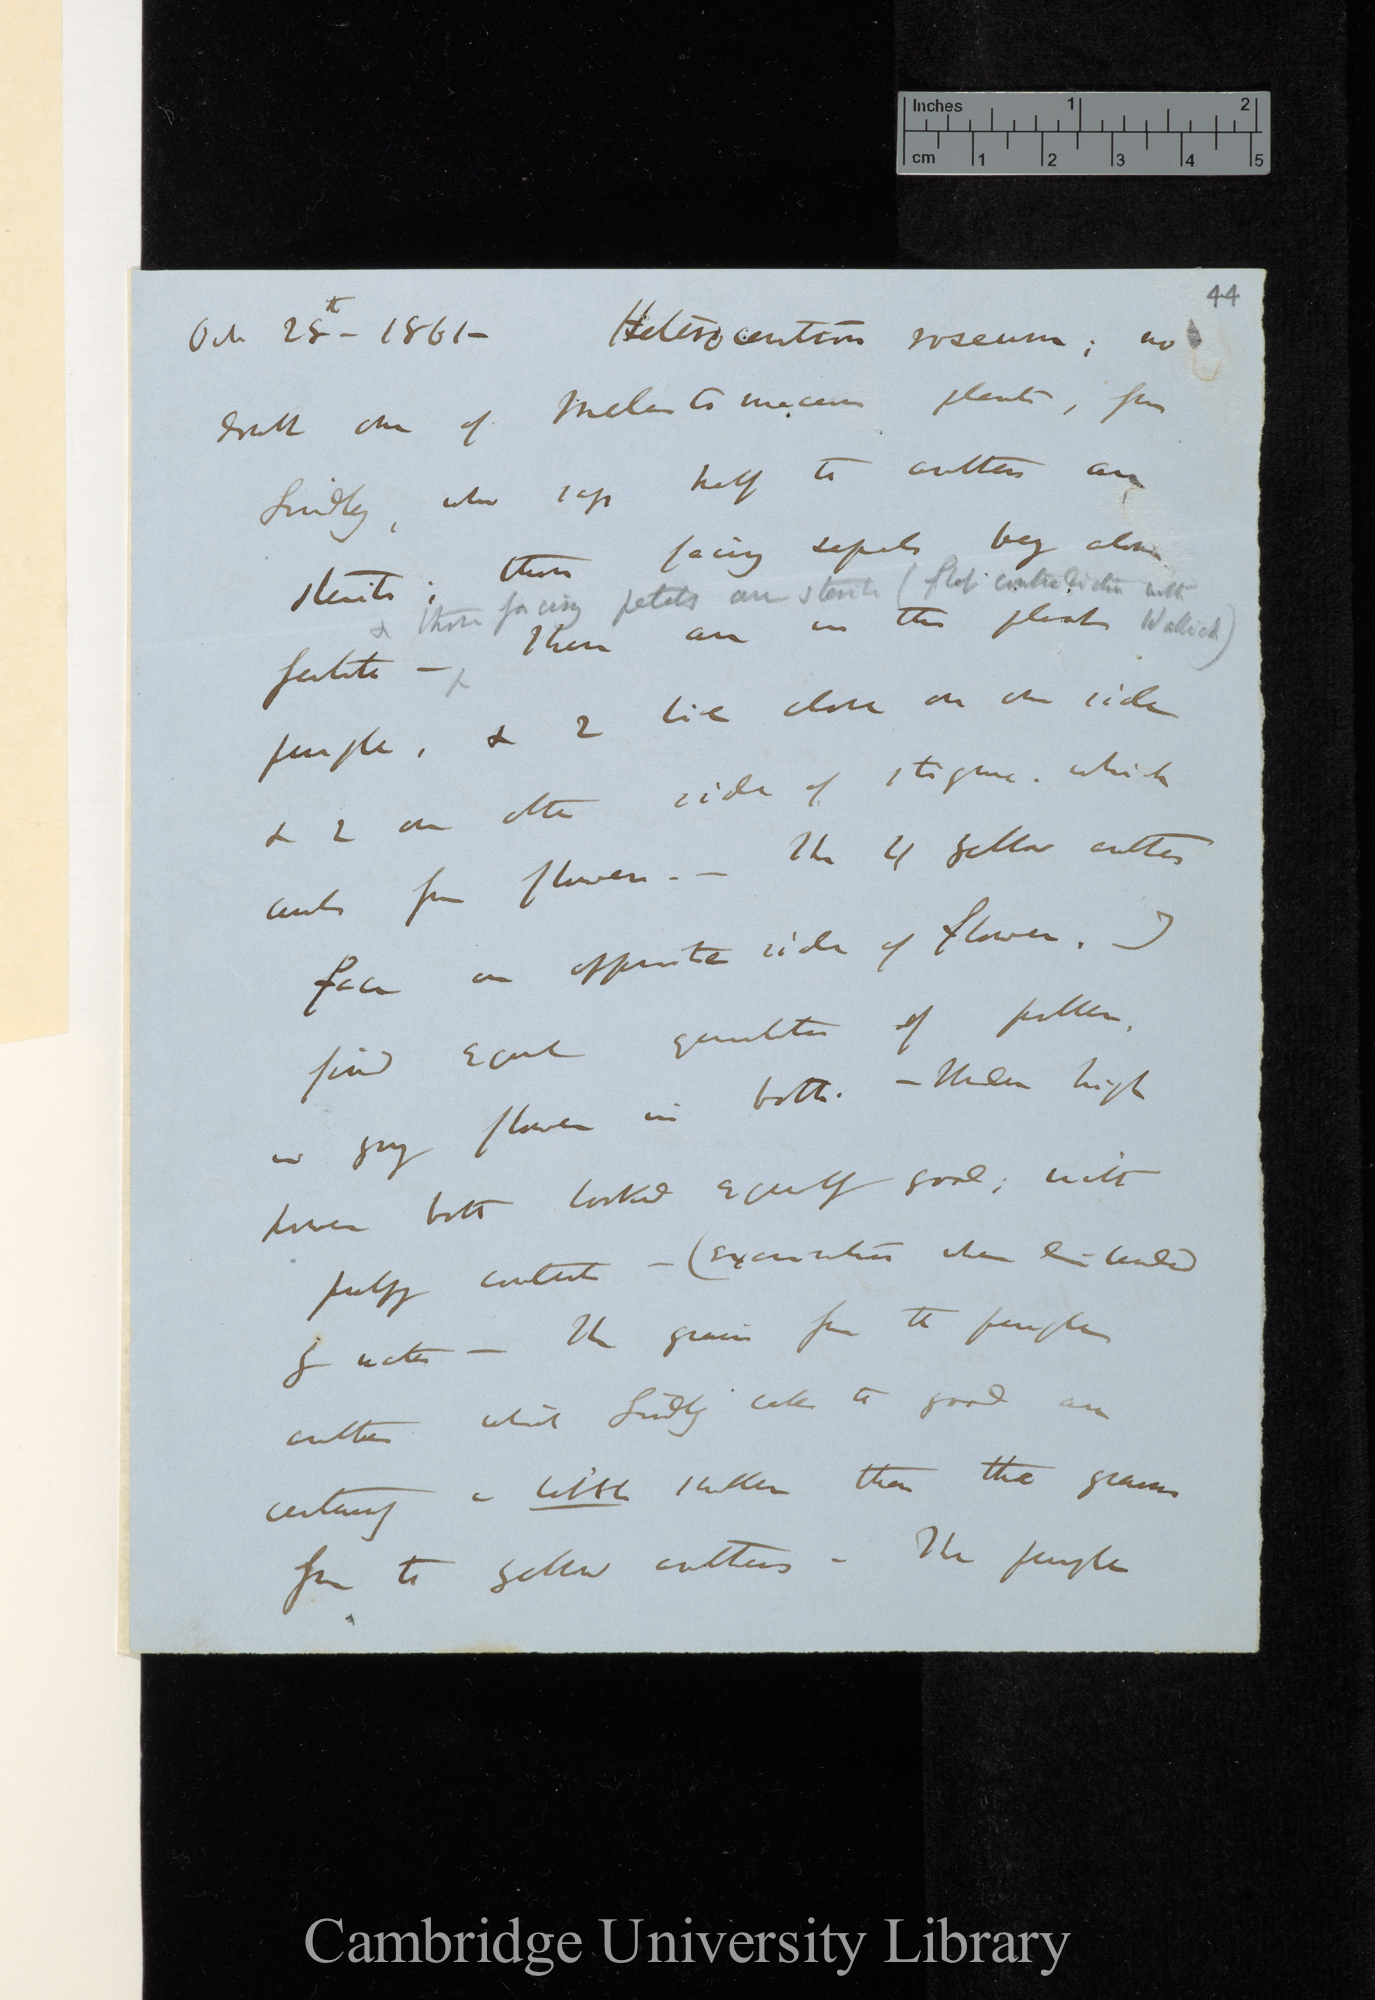 Inches 1 2
cm 1 2 3 4 5
44
Oct 28th – 1861 – Heterocentron roseum; no
doubt one of Melastomaceous plants, from
Lindley, who says half the anthers are
sterile; those facing sepals being alone
& those facing petals are sterile (flat contradiction with
Wallich)
fertile – These are in this plant
purple, & 2 lie close on one side
& 2 on other side of stigma. which
from flower. – The 4 yellow anthers
face on opposite side of flower. I
find equal quantities of pollen,
in young flower in both. – Under high
power both looked equally good; with
pulpy contents – (examination when distended
by water – The grains from the purple
anthers which Lindley calls the good are
certainly a little smaller than the grains
from the yellow anthers – The purple
Cambridge University Library